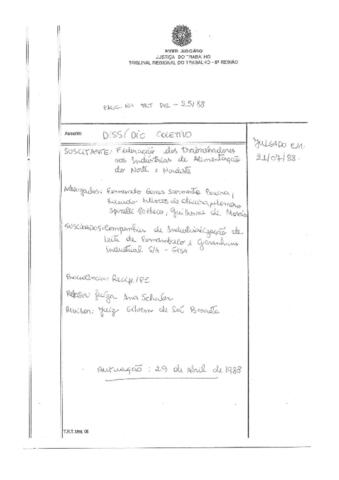 PODER JUDICIÁRIO
JUSTIÇA DO TRABALHO
TRIBUNAL REGIONAL DO TRABALHO - 6ª REGIÃO
PROC. Nº TRT DC - 25/88
Assunto: DISSÍDIO COLETIVO
JULGADO EM:
21/07/88.
SUSCITANTE: Federação dos Trabalhadores
nas Indústrias de Alimentação
do Norte e Nordeste
Advogados: Fernando
SUSCITADOS: Companhia de Industrialização de
Leite de Pernambuco e Garanhuns
Industrial S/A -
Procedência: Recife/PE
Relator: Juíza Ana Schuler
Revisor: Juiz Gilvan de Sá Barreto
AUTUAÇÃO: 29 de Abril de 1988
T.R.T. Mod. 06